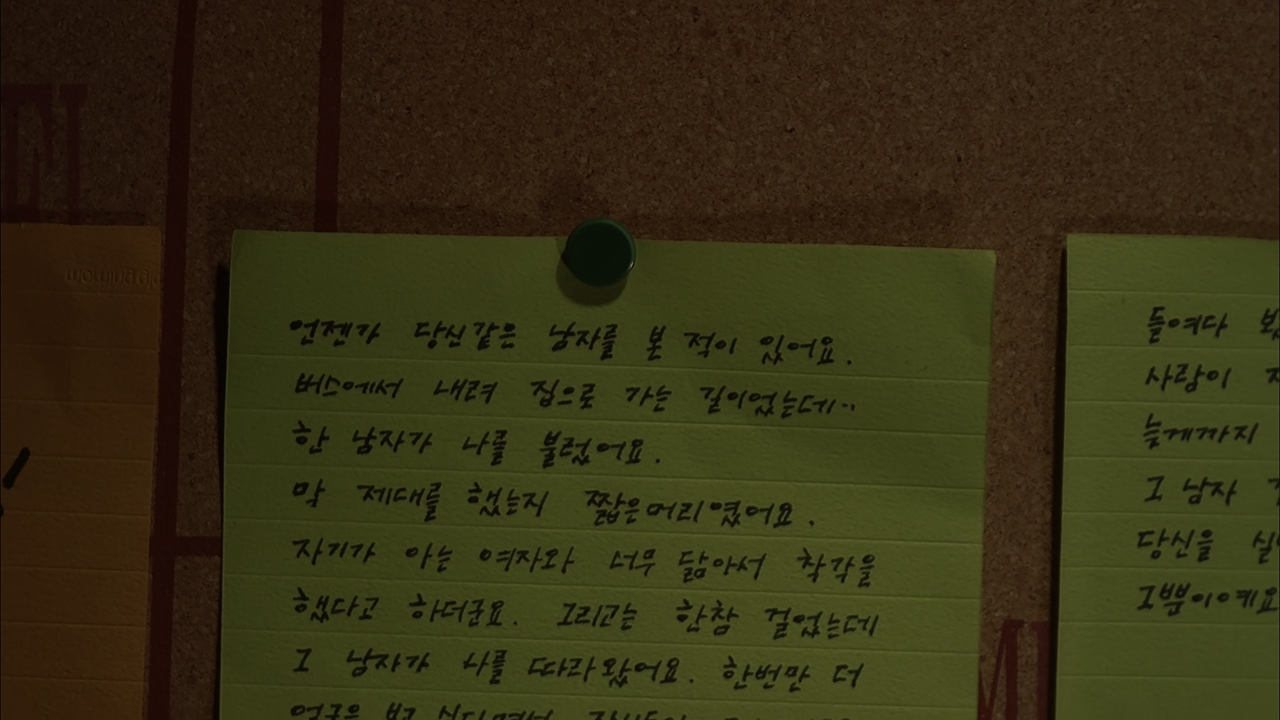 언젠가 당신같은 남자를 본 적이 있어요.
버스에서 내려 집으로 가는 길이었는데..
한 남자가 나를 불렀어요.
막 제대를 했는지 짧은머리였어요.
자기가 아는 여자와 너무 닮아서 착각을
했다고 하더군요. 그리고는 한참 걸었는데
그 남자가 나를 따라왔어요. 한번만 더
들여다
사람이
늦게까지
그 남자
당신을
그뿐이예요